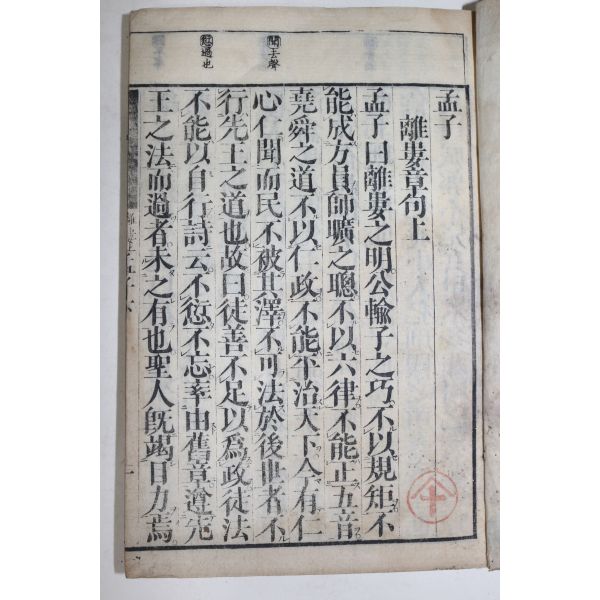 聞去聲
愆過也
孟子
離婁章句上
孟子曰離婁之明公輸子之巧不以規矩不
能成方員師曠之聰不以六律不能正五音
堯舜之道不以仁政不能平治天下今有仁
心仁聞而民不被其澤不可法於後世者不
行先王之道也故曰徒善不足以爲政徒法
不能以自行詩云不愆不忘率由舊章遵先
王之法而過者未之有也聖人旣竭目力焉
十